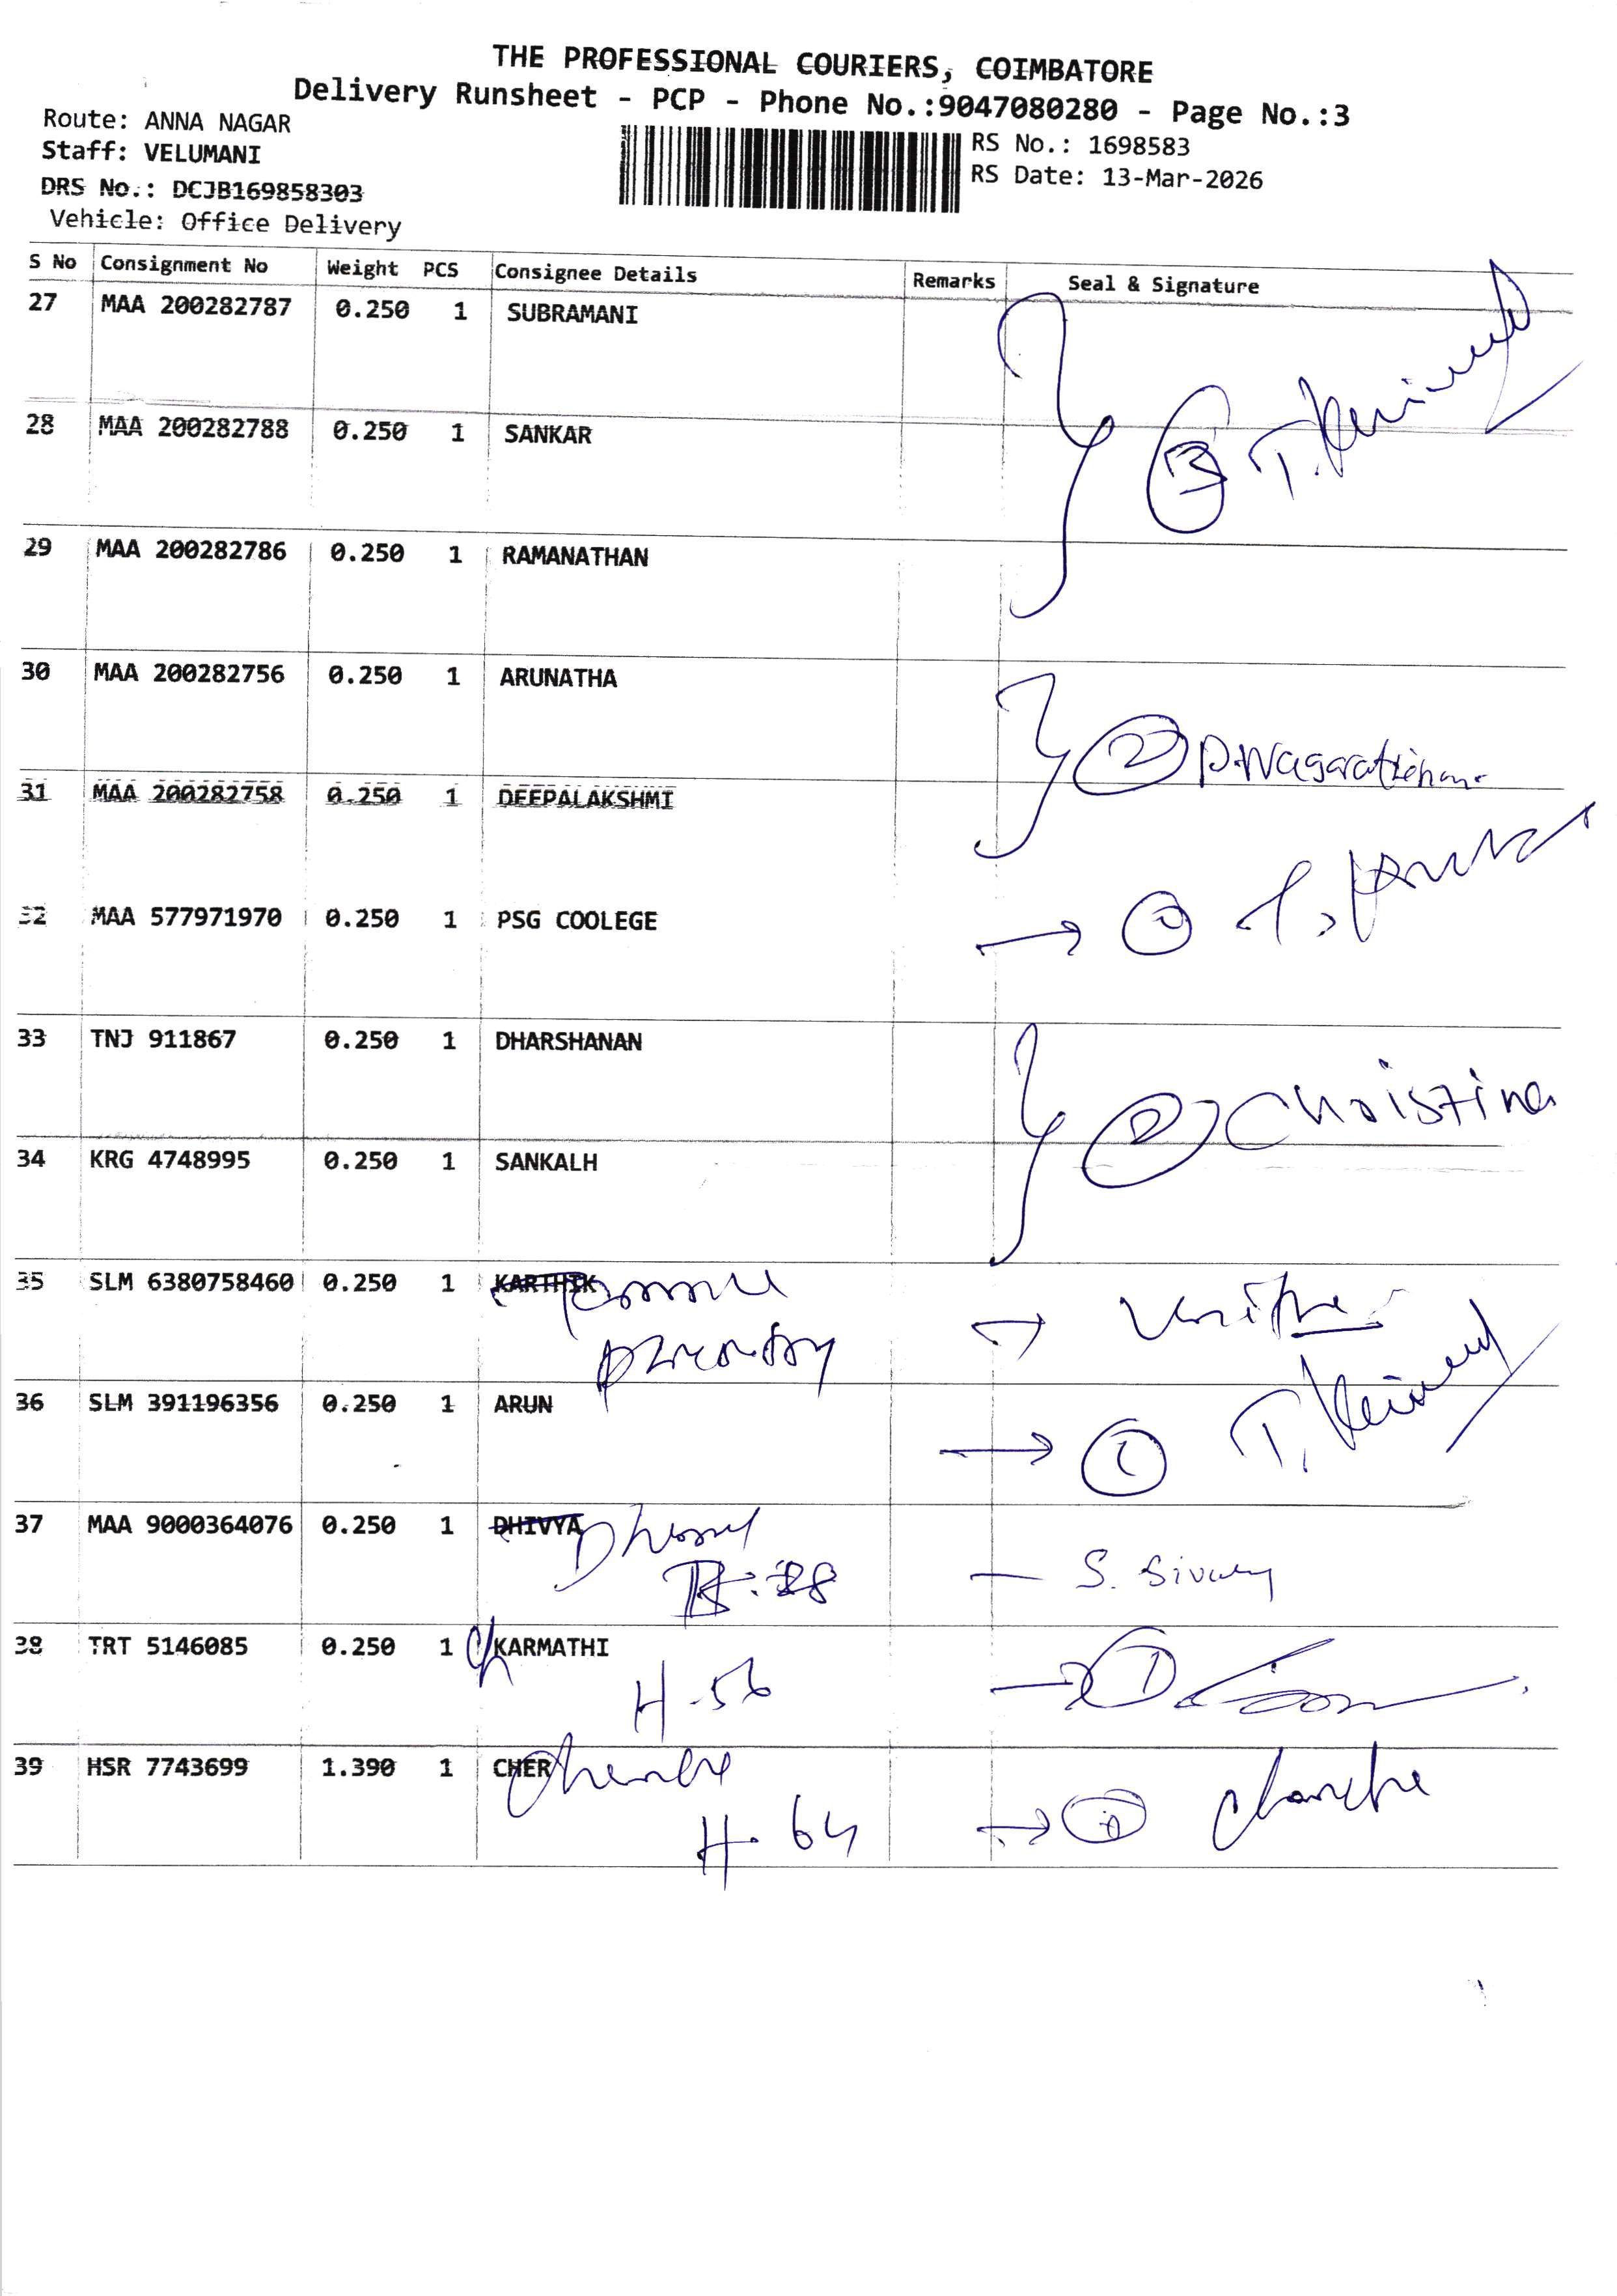 THE PROFESSIONAL COURIERS, COIMBATORE
Delivery Runsheet - PCP - Phone No.:9047080280 - Page No.:3
Route: ANNA NAGAR
Staff: VELUMANI
DRS No.: DCJB169858303
Vehicle: Office Delivery
RS No.: 1698583
RS Date: 13-Mar-2026
S No Consignment No Weight PCS Consignee Details Remarks Seal & Signature
27 MAA 200282787 0.250 1 SUBRAMANI
28 MAA 200282788 0.250 1 SANKAR
3 T.
29 MAA 200282786 0.250 1 RAMANATHAN
30 MAA 200282756 0.250 1 ARUNATHA
2
31 MAA 200282758 0.250 1 DEEPALAKSHMI
32 MAA 577971970 0.250 1 PSG COOLEGE
33 TNJ 911867 0.250 1 DHARSHANAN
2 Christina
34 KRG 4748995 0.250 1 SANKALH
35 SLM 6380758460 0.250 1 KARTHIK
36 SLM 391196356 0.250 1 ARUN
1 T.
37 MAA 9000364076 0.250 1 DHIVYA
S.
38 TRT 5146085 0.250 1 KARMATHI
H-56
1
39 HSR 7743699 1.390 1 CHER
H-64